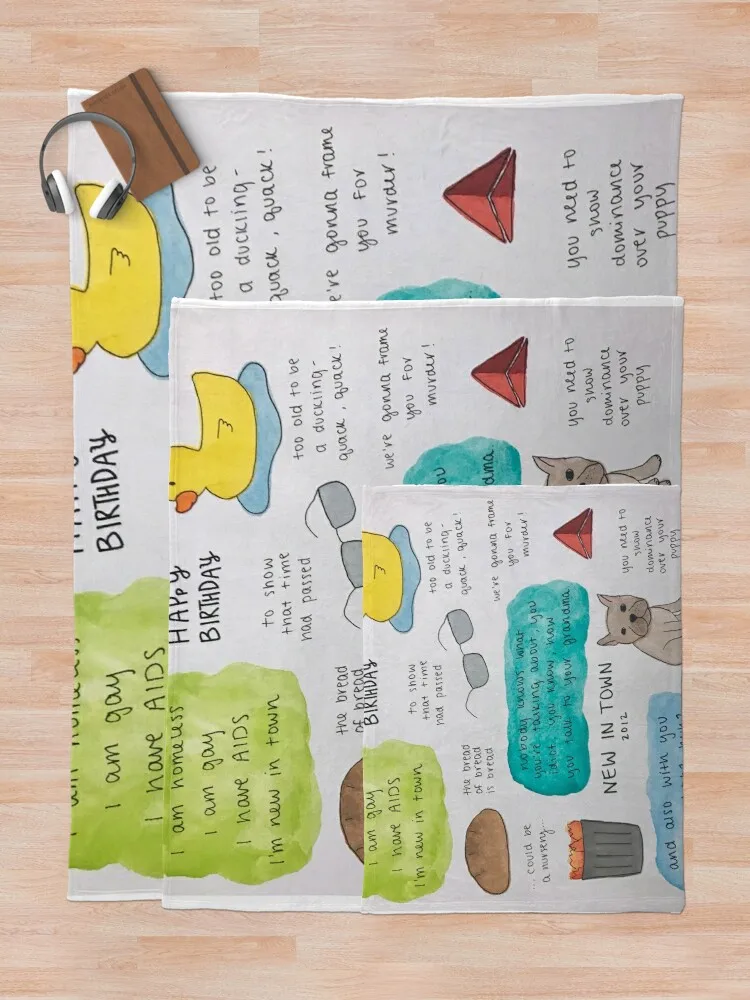 too old to be
a duckling-
quack, quack!
e're gonna frame
you for
murder!
you need to
show
dominance
over your
puppy
BIRTHDAY
I am gay
I have AIDS
too old to be
a duckling-
quack, quack!
we're gonna frame
you for
murder!
you need to
show
dominance
over your
puppy
you
dma
HAPPY
BIRTHDAY
to show
that time
had passed
the bread
of bread
I am homeless
I am gay
I have AIDS
I'm new in town
too old to be
a duckling-
quack, quack!
we're gonna frame
you for
murder!
you need to
show
dominance
over your
puppy
BIRTHDAY
to show
that time
had passed
nobody knows what
you're talking about, you
idiot you know how
you talk to your grandma
NEW IN TOWN
2012
the bread
of bread
is bread
I am gay
I have AIDS
I'm new in town
...could be
a nursery...
and also with you